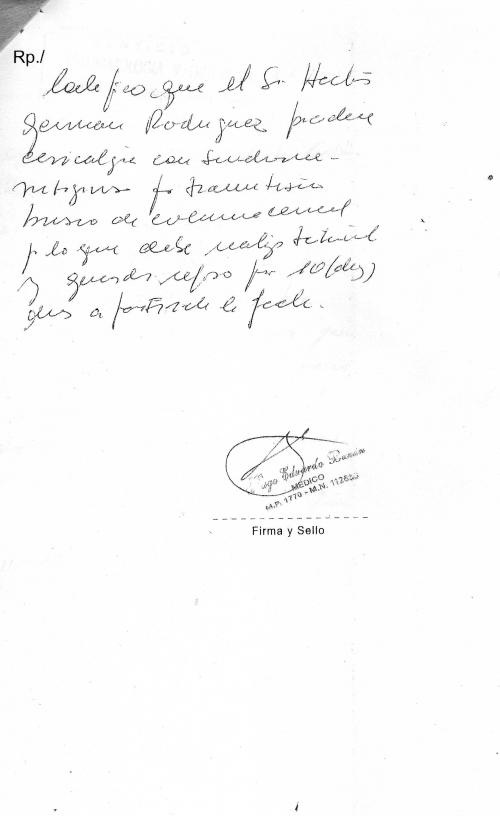 Rp./
Certifico que el Sr. Hector
German Rodriguez padece
cervicalgia con sindrome
por traumatismo
brusco de columna cervical
p lo que debe realizar
y guardar reposo por 10 (diez)
dias a partir de la fecha.
Eduardo
MEDICO
M.P. 1770 - M.N.
Firma y Sello